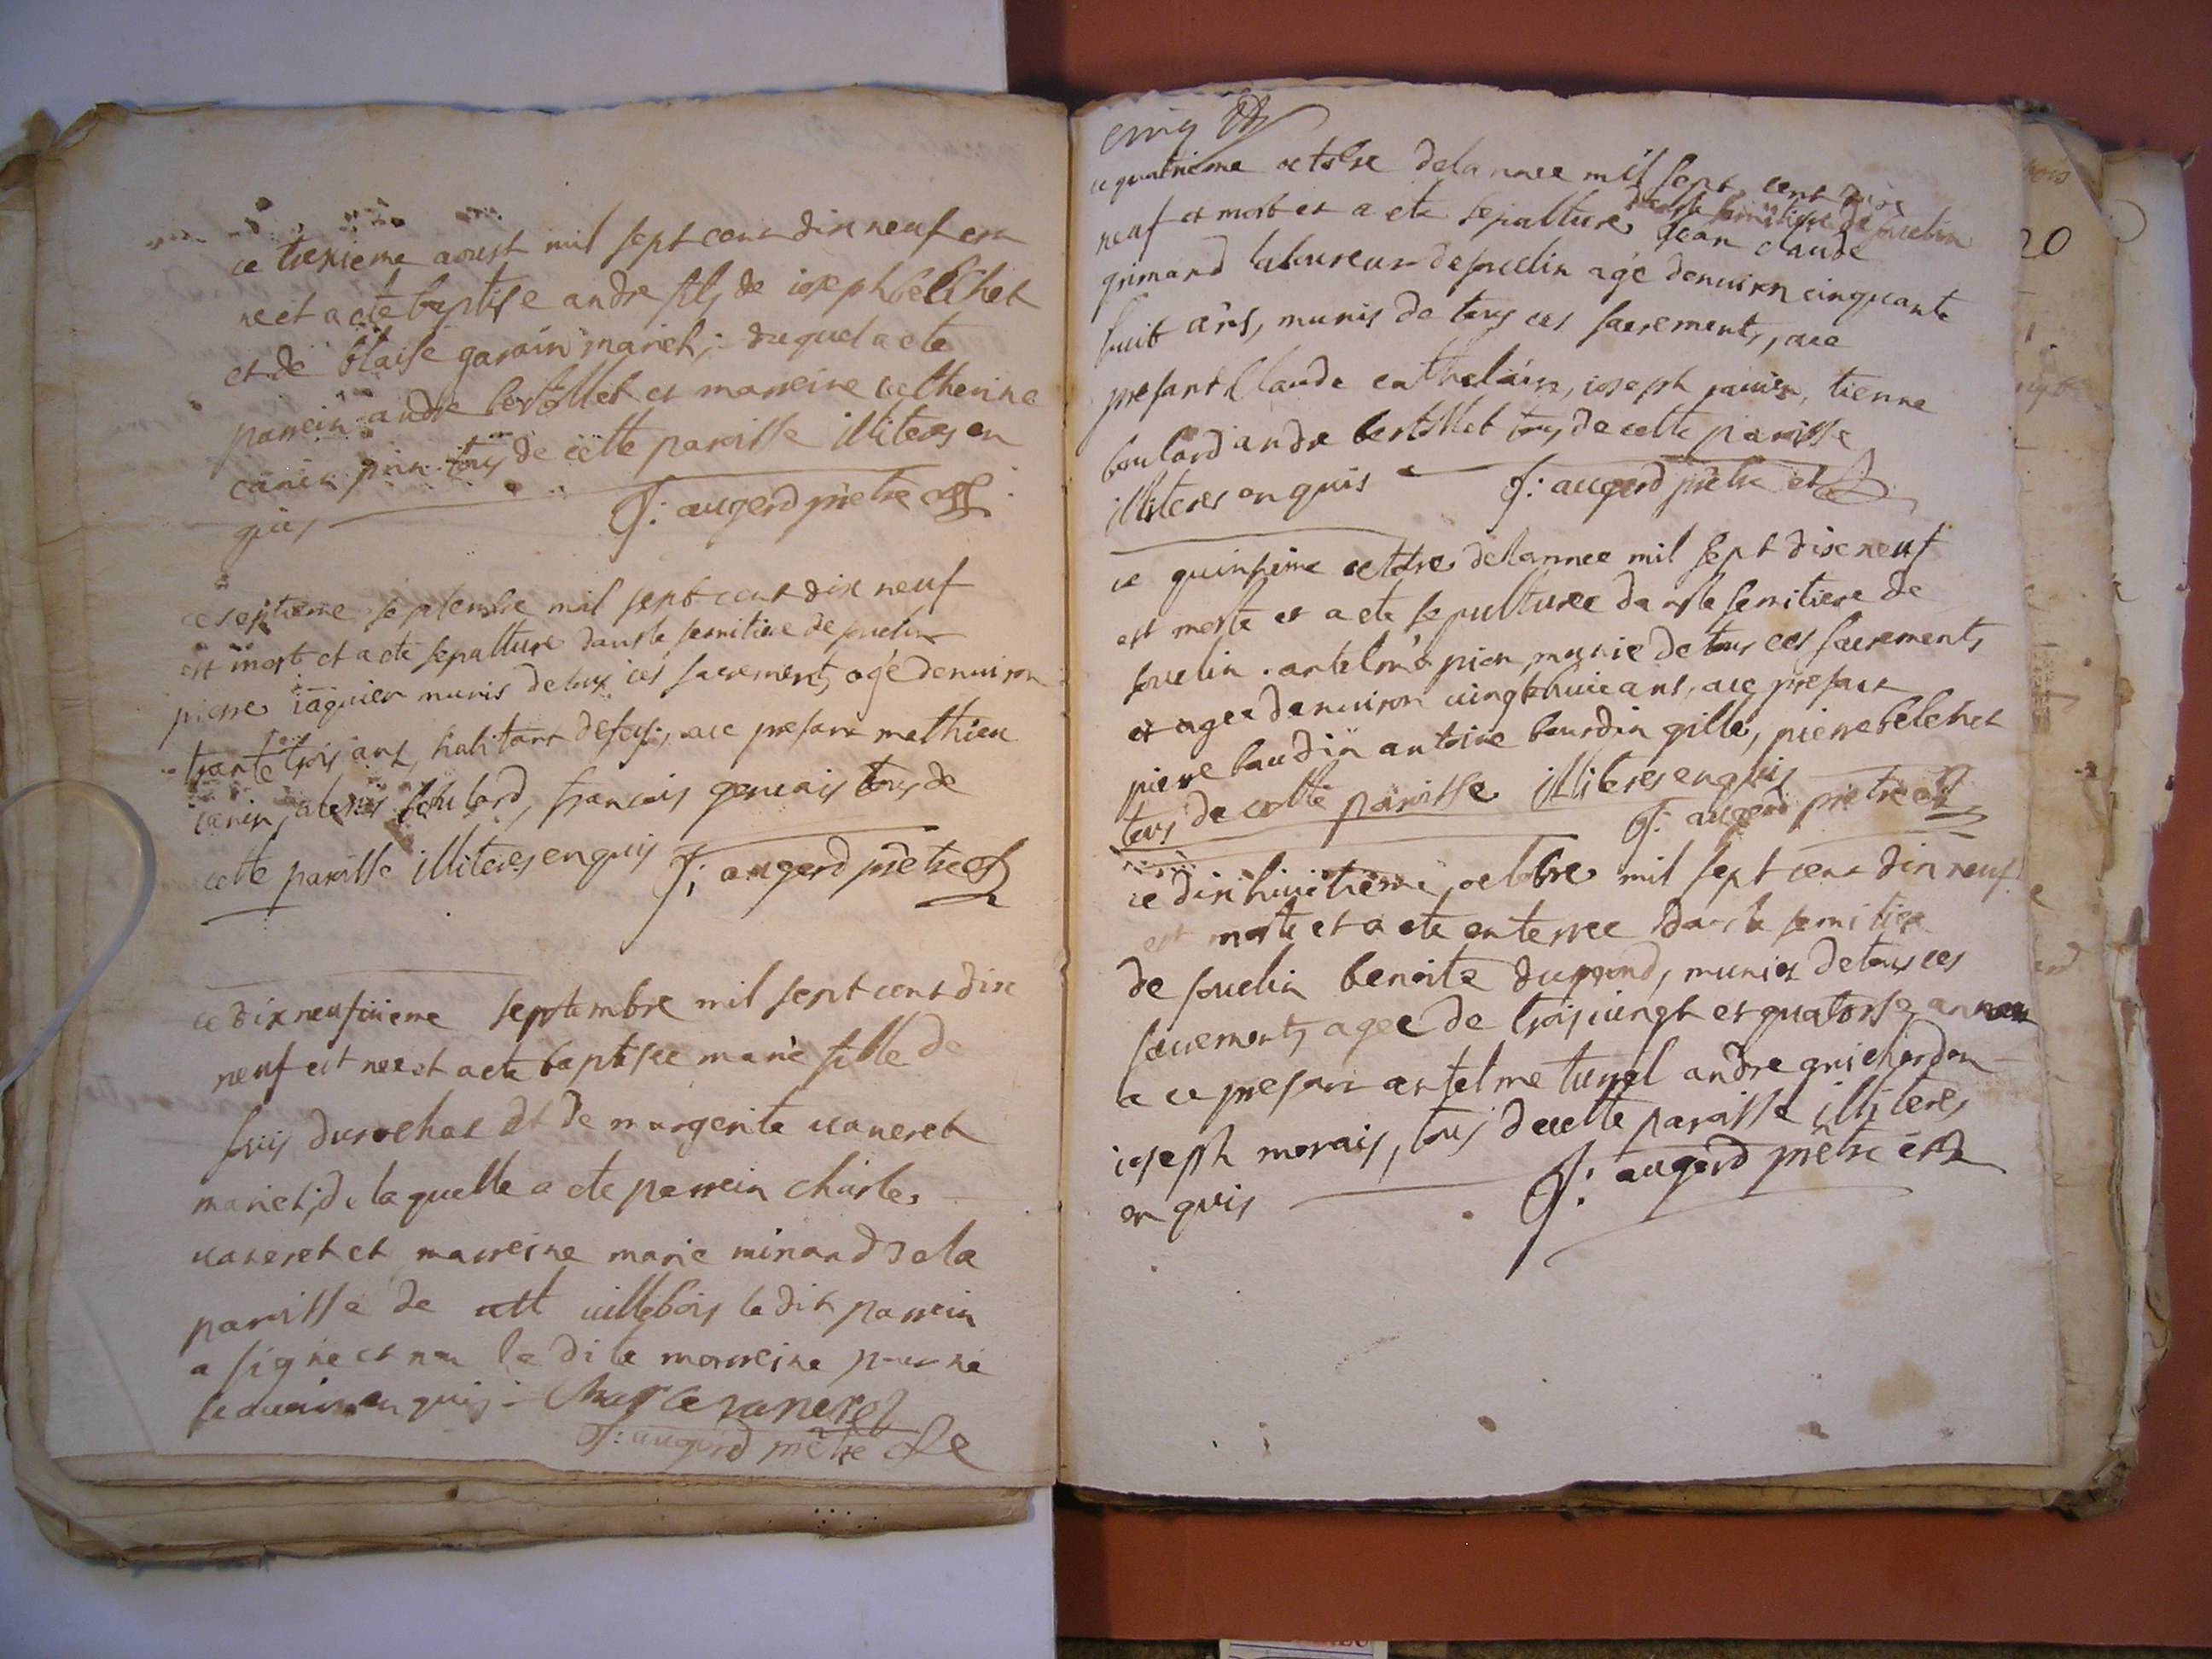 ce treisieme aoust mil sept cent dix neuf est
ne et a ete baptise andre fils de ioseph belchet
et de blaise garain mariet; duquel a ete
parrein andre bertollet et marreine catherine
canin tous de cette paroisse illiteres en
quis J: augerd prêtre
ce septieme septembre mil sept cent dix neuf
est mort et a ete sepulture dans le semitiere de souclin
pierre iaquier munis de tous ces sacrements, age denuiron
trante trois ans, habitant de soucl, ace presant mathieu
canin, alexis boulard, francois geruais tous de
cette paroisse illiteres enquis J: augerd prêtre
ce dix neufuieme septembre mil sept cent dix
neuf est nee et a ete baptisee marie fille de
louis durochat et de margerite uaneret
mariet; de laquelle a ete parrein charles
uaneret et marreine marie minand de la
paroisse de uillebois le dit parrein
a signe et non la dite marreine pour ne
scauoir enquis - Charle vaneret
J: augerd prêtre
cinq
ce quatrieme octobre de lannee mil sept cent dix
neuf est mort et a ete sepulture dans le semitiere de souclin jean claude
grimand laboureur de souclin age denuiron cinquante
huit ans, munis de tous ces sacrements, ace
presant Claude cathelain, ioseph tienne
boulard andre bertollet tous de cette paroisse
illiteres enquis J: augerd prêtre
ce quinsieme octobre de lannee mil sept dix neuf
est morte et a ete sepulturee dans le semitiere de
souclin. antelme pion, munie de tous ces sacrements
et agee denuiron uingt huit ans, ace presant
pierre baudin antoine bourdin gille, pierre belchet
tous de cette paroisse illiteres enquis
J: augerd prêtre
ce dix huitieme octobre mil sept cent dix neuf
est morte et a ete enterree dans le semitiere
de souclin benoite dupond, munies de tous ces
sacrements agee de trois uingt et quatorse annee
a ce presant antelme tunel andre guichardon
ioseph morais, tous de cette paroisse illiteres
en quis J: augerd prêtre
20